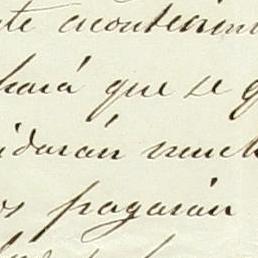 te acontecim
hará que se q
idarán much
os pagarán